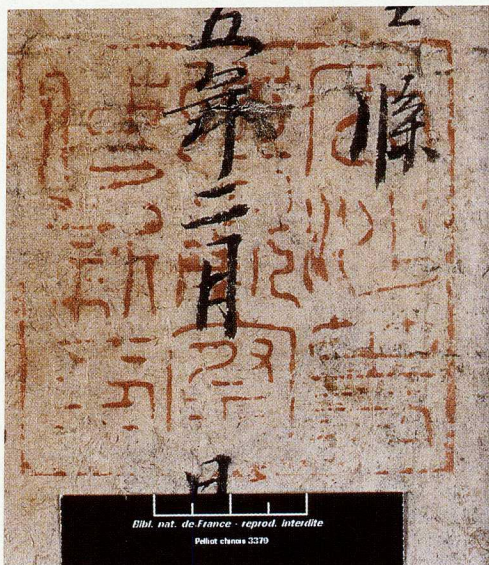 五年二月 日
瓜沙等
州觀察
使新印
Bibl. nat. de France - reprod. interdite
Pelliot chinois 3379